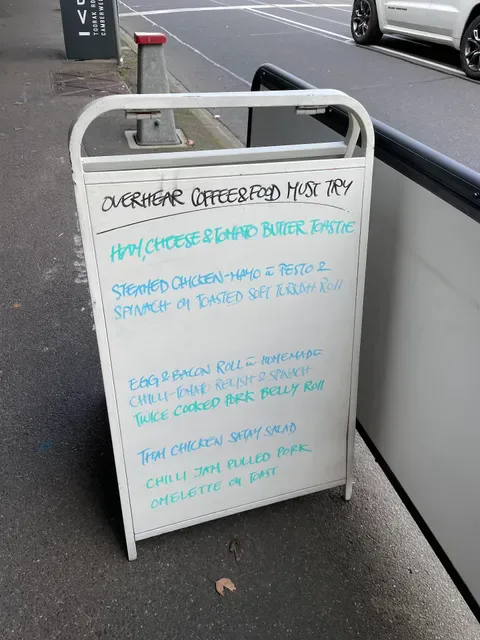 TOORAK RO
CAMBERWE
OVERHEAR COFFEE & FOOD MUST TRY
HAM, CHEESE & TOMATO BUTTER TOASTIE
STEAMED CHICKEN-MAYO w PESTO &
SPINACH ON TOASTED SOFT TURKISH ROLL
EGG & BACON ROLL w HOMEMADE
CHILLI-TOMATO RELISH & SPINACH
TWICE COOKED PORK BELLY ROLL
THAI CHICKEN SATAY SALAD
CHILLI JAM PULLED PORK
OMELETTE ON TOAST